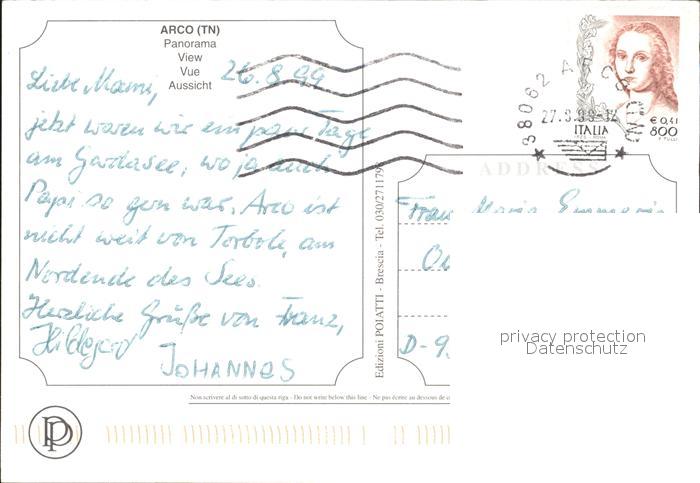 ARCO (TN)
Panorama
View
Vue
Aussicht
26.8.99
Liebe Mami,
jetzt waren wir ein paar Tage
am Gardasee, wo ja auch
Papi so gern war. Arco ist
nicht weit von Torbole, am
Nordende des Sees.
Herzliche Grüße von Franz,
Hildegard
JOHANNES
Edizioni POIATTI - Brescia - Tel. 030/2711796
Non scrivere al di sotto di questa riga - Do not write below this line - Ne pas écrire au dessous de
PP
38062 ARCO
27.8.99-12
€ 0,41
ITALIA 800
ADDRESS
Frau Maria
D-9
privacy protection
Datenschutz